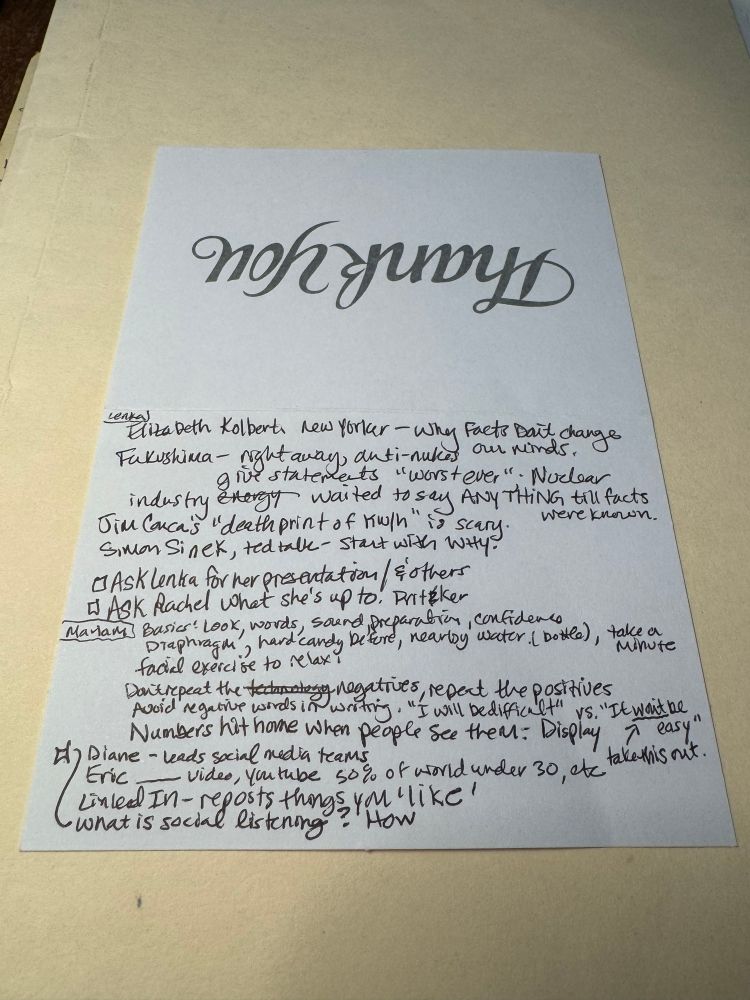 Thank You
Lenka
Elizabeth Kolbert New Yorker - Why Facts Don't change
our minds.
Fukushima - right away, anti-nukes
give statements "worst ever". Nuclear
industry energy waited to say ANYTHING till facts
were known.
Jim Conca's "deathprint of kw/h" is scary.
Simon Sinek, ted talk - Start with WHY?
Ask Lenka for her presentation / & others
Ask Rachel what she's up to. Pritzker
Mariam Basics: Look, words, sound, preparation, confidence
Diaphragm, hard candy before, nearby water (bottle), take a
minute
facial exercise to relax!
Don't repeat the technology negatives, repeat the positives
Avoid negative words in writing. "I will be difficult" vs. "It won't be
easy"
Numbers hit home when people see them: Display
take this out.
Diane - leads social media teams
Eric ___ video, youtube 50% of world under 30, etc
Linked In - reposts things you 'like'
What is social listening? How